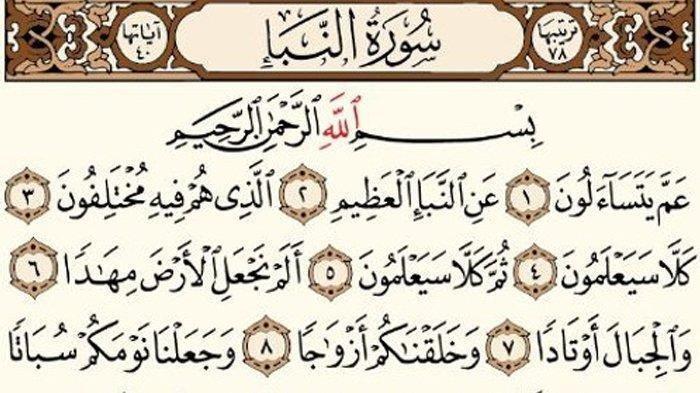 ترتيبها ٧٨ سُورَةُ النَّبَإِ آياتها ٤٠
بِسْمِ ٱللَّهِ ٱلرَّحْمَٰنِ ٱلرَّحِيمِ
عَمَّ يَتَسَآءَلُونَ ١ عَنِ ٱلنَّبَإِ ٱلْعَظِيمِ ٢ ٱلَّذِى هُمْ فِيهِ مُخْتَلِفُونَ ٣
كَلَّا سَيَعْلَمُونَ ٤ ثُمَّ كَلَّا سَيَعْلَمُونَ ٥ أَلَمْ نَجْعَلِ ٱلْأَرْضَ مِهَٰدًا ٦
وَٱلْجِبَالَ أَوْتَادًا ٧ وَخَلَقْنَٰكُمْ أَزْوَٰجًا ٨ وَجَعَلْنَا نَوْمَكُمْ سُبَاتًا